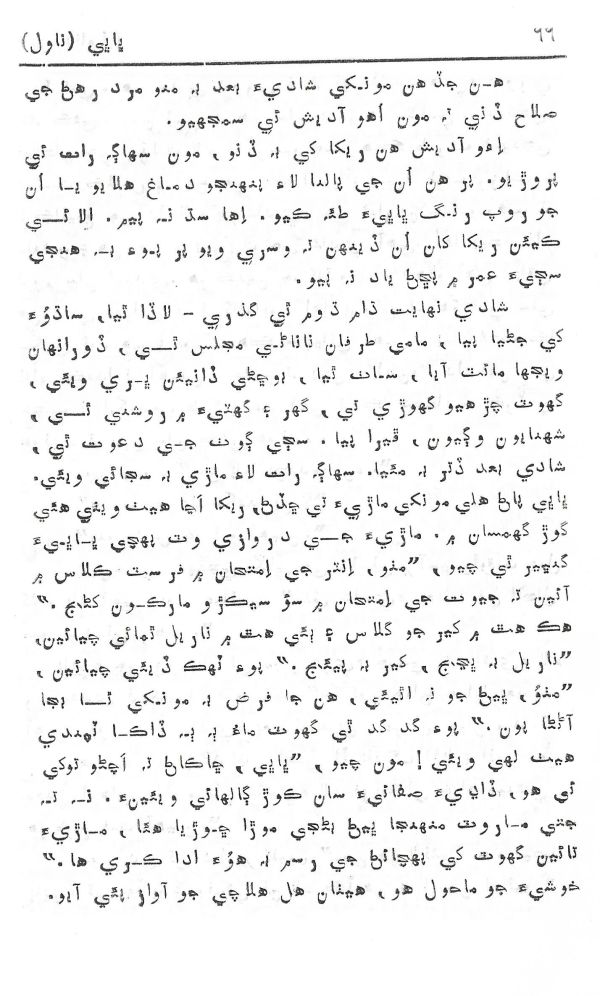 ٦٦ ڀاڀي (ناول)
هن جڏهن مونکي شاديءَ بعد به منو مرد رهڻ جي
صلاح ڏني ته مون اهو آديش ئي سمجهيو.
اِهو آديش هن ريکا کي به ڏنو، مون سهاڳ رات ئي
پروڙيو. پر هن اُن جي پالنا لاءِ پنهنجو دماغ هلايو يا اُن
جو روپ رنگ ڀاڀيءَ طئه ڪيو. اِها سڌ نه پيم. الائي
ڪيئن ريکا کان اُن ڏينهن ته وسري ويو پر پوءِ به هنجي
سڄيءَ عمر ۾ پڇڻ ياد نه پيو.
شادي نهايت ڌام ڌوم ئي گذري - لاڏا ٿيا، ساڌوءَ
کي جڻيا پيا، مامي طرفان ناناڻي مجلس ٿي، ڏورانهان
ويجها مائٽ آيا، سات ٿيا، ٻوڇڻي ڏاتيئن ڀري ويئي،
گهوٽ چڙهيو گهوڙي تي، گهر ۽ گهٽيءَ ۾ روشني ٿي،
شهنايون وڳيون، ڦيرا پيا. سڄي ڳوٺ جي دعوت ٿي،
شادي بعد ڏڻر به مڻيا. سهاڳ رات لاءِ ماڙي به سجائي ويئي.
ڀاڀي پاڻ هلي مونکي ماڙيءَ تي ڇڏڻ، ريکا اڃا هيٺ ويٺي هئي
گوڙ گهمسان ۾. ماڙيءَ جي دروازي وٽ پهچي ڀاڀيءَ
گنڀير ٿي چيو، ”منو، اِنٽر جي اِمتحان ۾ فرسٽ ڪلاس ۾
آئين ته جيوت جي اِمتحان ۾ سؤ سيڪڙو مارڪون کڻج.“
هڪ هٿ ۾ کير جو گلاس ۽ ٻئي هٿ ۾ ناريل ٿمائي چيائين،
”ناريل به ڀڃج، کير به پيئج.“ پوءِ ٽهڪ ڏيئي چيائين،
”منوُ، ڀيڻ جو نه اٿيئي، هن جا فرض به مونکي ٿا بجا
آڻڻا پون.“ پوءِ گد گد ٿي گهوٽ ماءُ به ٻه ڌاڪا ٽهندي
هيٺ لهي ويئي! مون چيو، ”ڀاڀي، ڇاڪاڻ ته اَڇڻو توکي
ئي هو، ڏاڍيءَ صفائيءَ سان ڪوڙ ڳالهائي ويئينءَ. نه ته
جتي ماروٽ منهنجا ڀيڻ بڻجي موڙا چوڙيا هئا، ماڙيءَ
تائين گهوٽ کي پهچائڻ جي رسم به هوُءَ ادا ڪري ها.“
خوشيءَ جو ماحول هو، هيٺان هل هلاچي جو آواز پئي آيو.